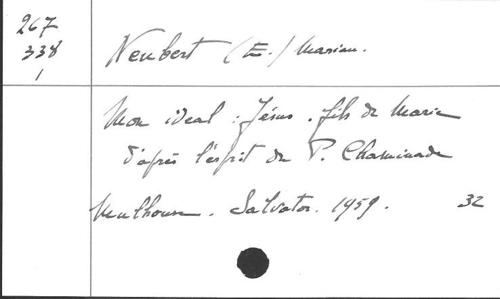 267
338
1
Neubert (E.) Marian.
Mon ideal : Jésus. fils de Marie
d'après l'esprit du P. Chaminade
Mulhouse. Salvator. 1959. 32